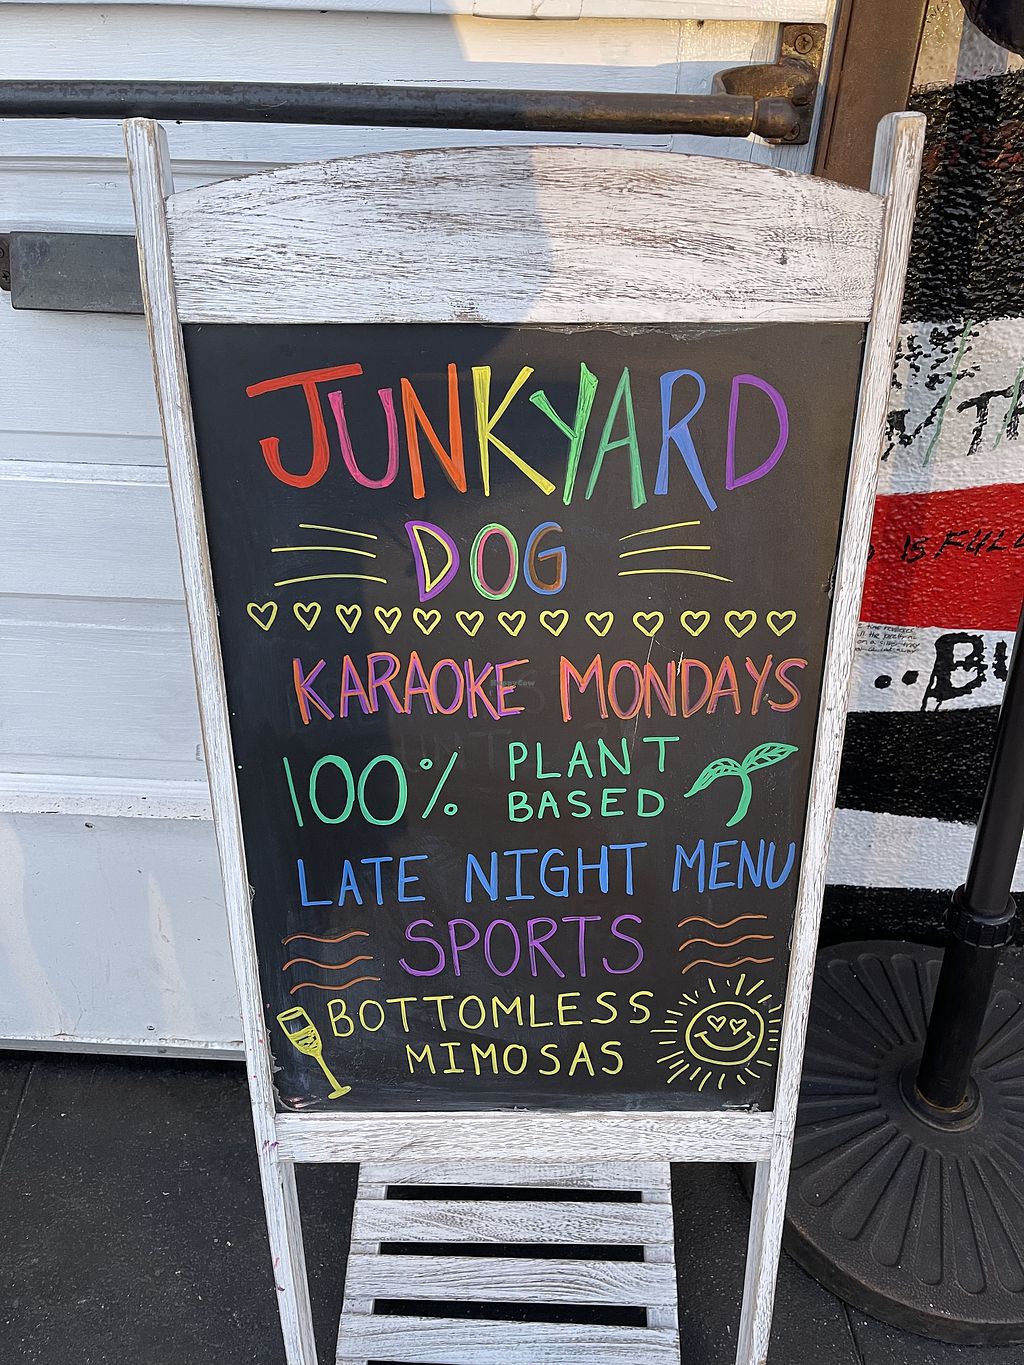 JUNKYARD
DOG
KARAOKE MONDAYS
100% PLANT
BASED
LATE NIGHT MENU
SPORTS
BOTTOMLESS
MIMOSAS
HappyCow
IS FULL
..BU